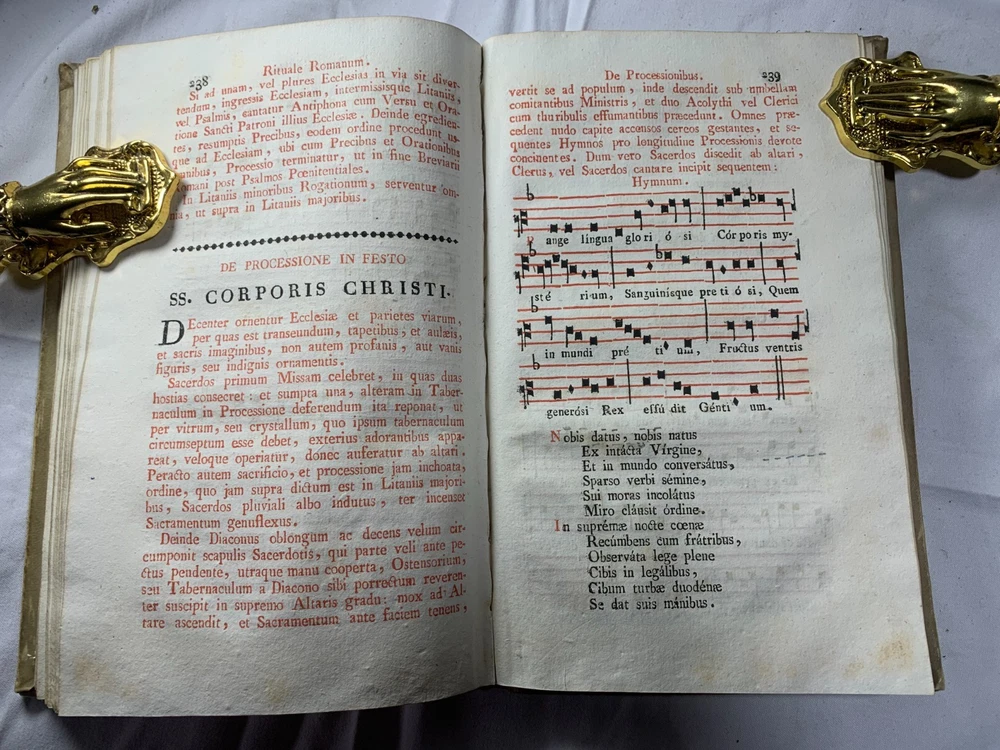 238
Rituale Romanum.
Si ad unam, vel plures Ecclesias in via sit diver-
tendum, ingressis Ecclesiam, intermissisque Litaniis,
vel Psalmis, cantatur Antiphona cum Versu et Ora-
tione Sancti Patroni illius Ecclesiæ. Deinde egredien-
tes, resumptis Precibus, eodem ordine procedunt us-
que ad Ecclesiam, ubi cum Precibus et Orationibus
Processio terminatur, ut in fine Breviarii
mani post Psalmos Pœnitentiales.
In Litaniis minoribus Rogationum, serventur om-
nia, ut supra in Litaniis majoribus.
DE PROCESSIONE IN FESTO
SS. CORPORIS CHRISTI.
DEcenter ornentur Ecclesiæ et parietes viarum,
per quas est transeundum, tapetibus, et aulæis,
et sacris imaginibus, non autem profanis, aut vanis
figuris, seu indignis ornamentis.
Sacerdos primum Missam celebret, in quas duas
hostias consecret: et sumpta una, alteram in Taber-
naculum in Processione deferendum ita reponat, ut
per vitrum, seu crystallum, quo ipsum tabernaculum
circumseptum esse debet, exterius adorantibus appa-
reat, veloque operiatur, donec auferatur ab altari.
Peracto autem sacrificio, et processione jam inchoata,
ordine, quo jam supra dictum est in Litaniis majori-
bus, Sacerdos pluviali albo indutus, ter incenset
Sacramentum genuflexus.
Deinde Diaconus oblongum ac decens velum cir-
cumponit scapulis Sacerdotis, qui parte veli ante pe-
ctus pendente, utraque manu cooperta, Ostensorium,
seu Tabernaculum a Diacono sibi porrectum reveren-
ter suscipit in supremo Altaris gradu: mox ad Al-
tare ascendit, et Sacramentum ante faciem tenens,
De Processionibus.
239
vertit se ad populum, inde descendit sub umbellam
comitantibus Ministris, et duo Acolythi vel Clerici
cum thuribulis effumantibus præcedunt. Omnes præ-
cedunt nudo capite accensos cereos gestantes, et se-
quentes Hymnos pro longitudine Processionis devote
concinentes. Dum vero Sacerdos discedit ab altari,
Clerus, vel Sacerdos cantare incipit sequentem:
Hymnum.
Pange lingua glo ri ó si Cór po ris my-
sté ri um, Sanguinisque pre ti ó si, Quem
in mundi pré ti um, Fructus ventris
generósi Rex effú dit Génti um.
Nobis datus, nobis natus
Ex intácta Vírgine,
Et in mundo conversátus,
Sparso verbi sémine,
Sui moras incolátus
Miro cláusit órdine.
In suprémæ nocte cœnæ
Recúmbens cum frátribus,
Observáta lege plene
Cibis in legálibus,
Cibum turbæ duodénæ
Se dat suis mánibus.